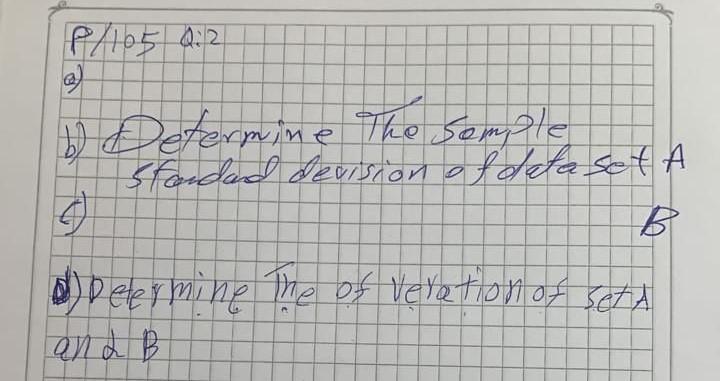 P/105 Q:2
a)
b) Determine The Sample
standad devision of data set A
c) B
d) Determine The of veration of set A
and B